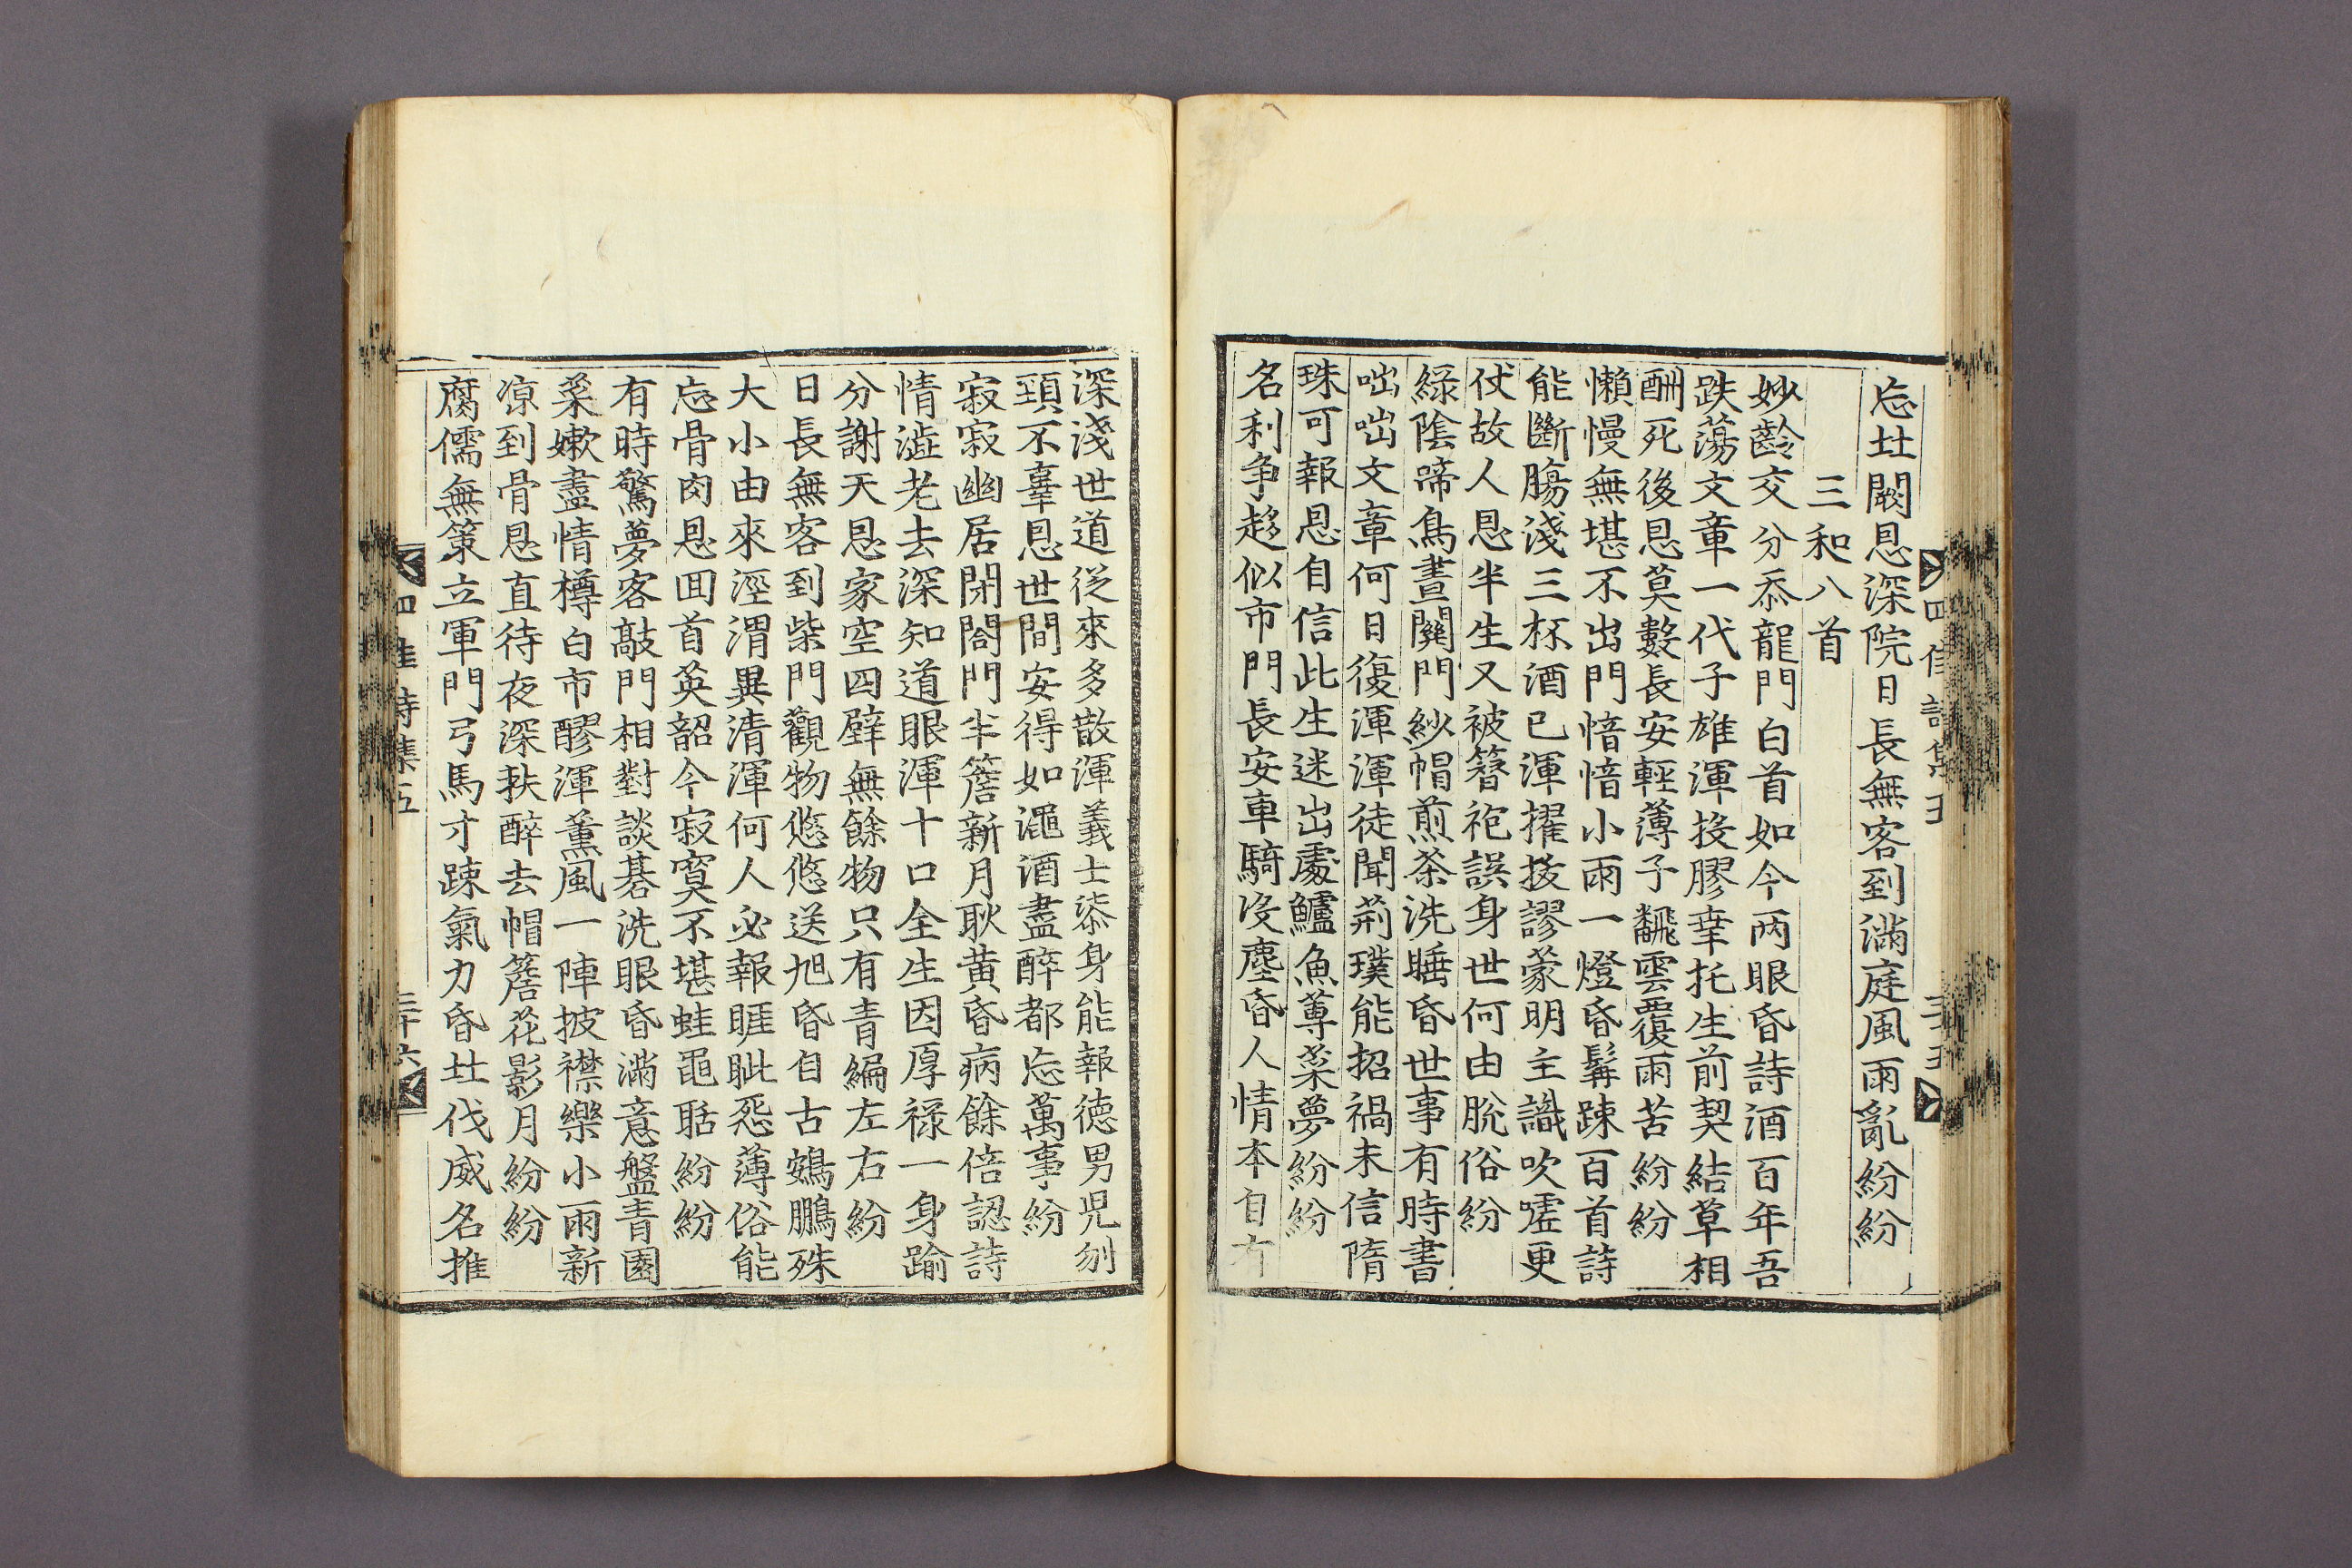 忘北闕恩深院日長無客到滿庭風雨亂紛紛
三和八首
妙齡交分忝龍門白首如今兩眼昏詩酒百年吾
跌蕩文章一代子雄渾投膠幸托生前契結草相
酬死後恩莫數長安輕薄子飜雲覆雨苦紛紛
懶慢無堪不出門愔愔小雨一燈昏髯踈百首詩
能斷膓淺三杯酒已渾擢拔謬蒙明主識吹噓更
仗故人恩半生又被簪袍誤身世何由脫俗紛
綠陰啼鳥晝關門紗帽煎茶洗睡昏世事有時書
咄咄文章何日復渾渾徒聞荊璞能招禍未信隋
珠可報恩自信此生迷出處鱸魚蓴菜夢紛紛
名利爭趍似市門長安車騎沒塵昏人情本自有
深淺世道從來多散渾義士漆身能報德男兒刎
頸不辜恩世間安得如澠酒盡醉都忘萬事紛
寂寂幽居閉閤門半簷新月耿黃昏病餘倍認詩
情澁老去深知道眼渾十口全生因厚祿一身踰
分謝天恩家空四壁無餘物只有青編左右紛
日長無客到柴門觀物悠悠送旭昏自古鷃鵬殊
大小由來涇渭異清渾何人必報睚眦㤪薄俗能
忘骨肉恩囬首英韶今寂寞不堪蛙黽聒紛紛
有時驚夢客敲門相對談碁洗眼昏滿意盤青園
菜嫰盡情樽白市醪渾薰風一陣披襟樂小雨新
凉到骨恩直待夜深扶醉去帽簷花影月紛紛
腐儒無策立軍門弓馬才踈氣力昏北伐威名推
四佳詩集五
三十六